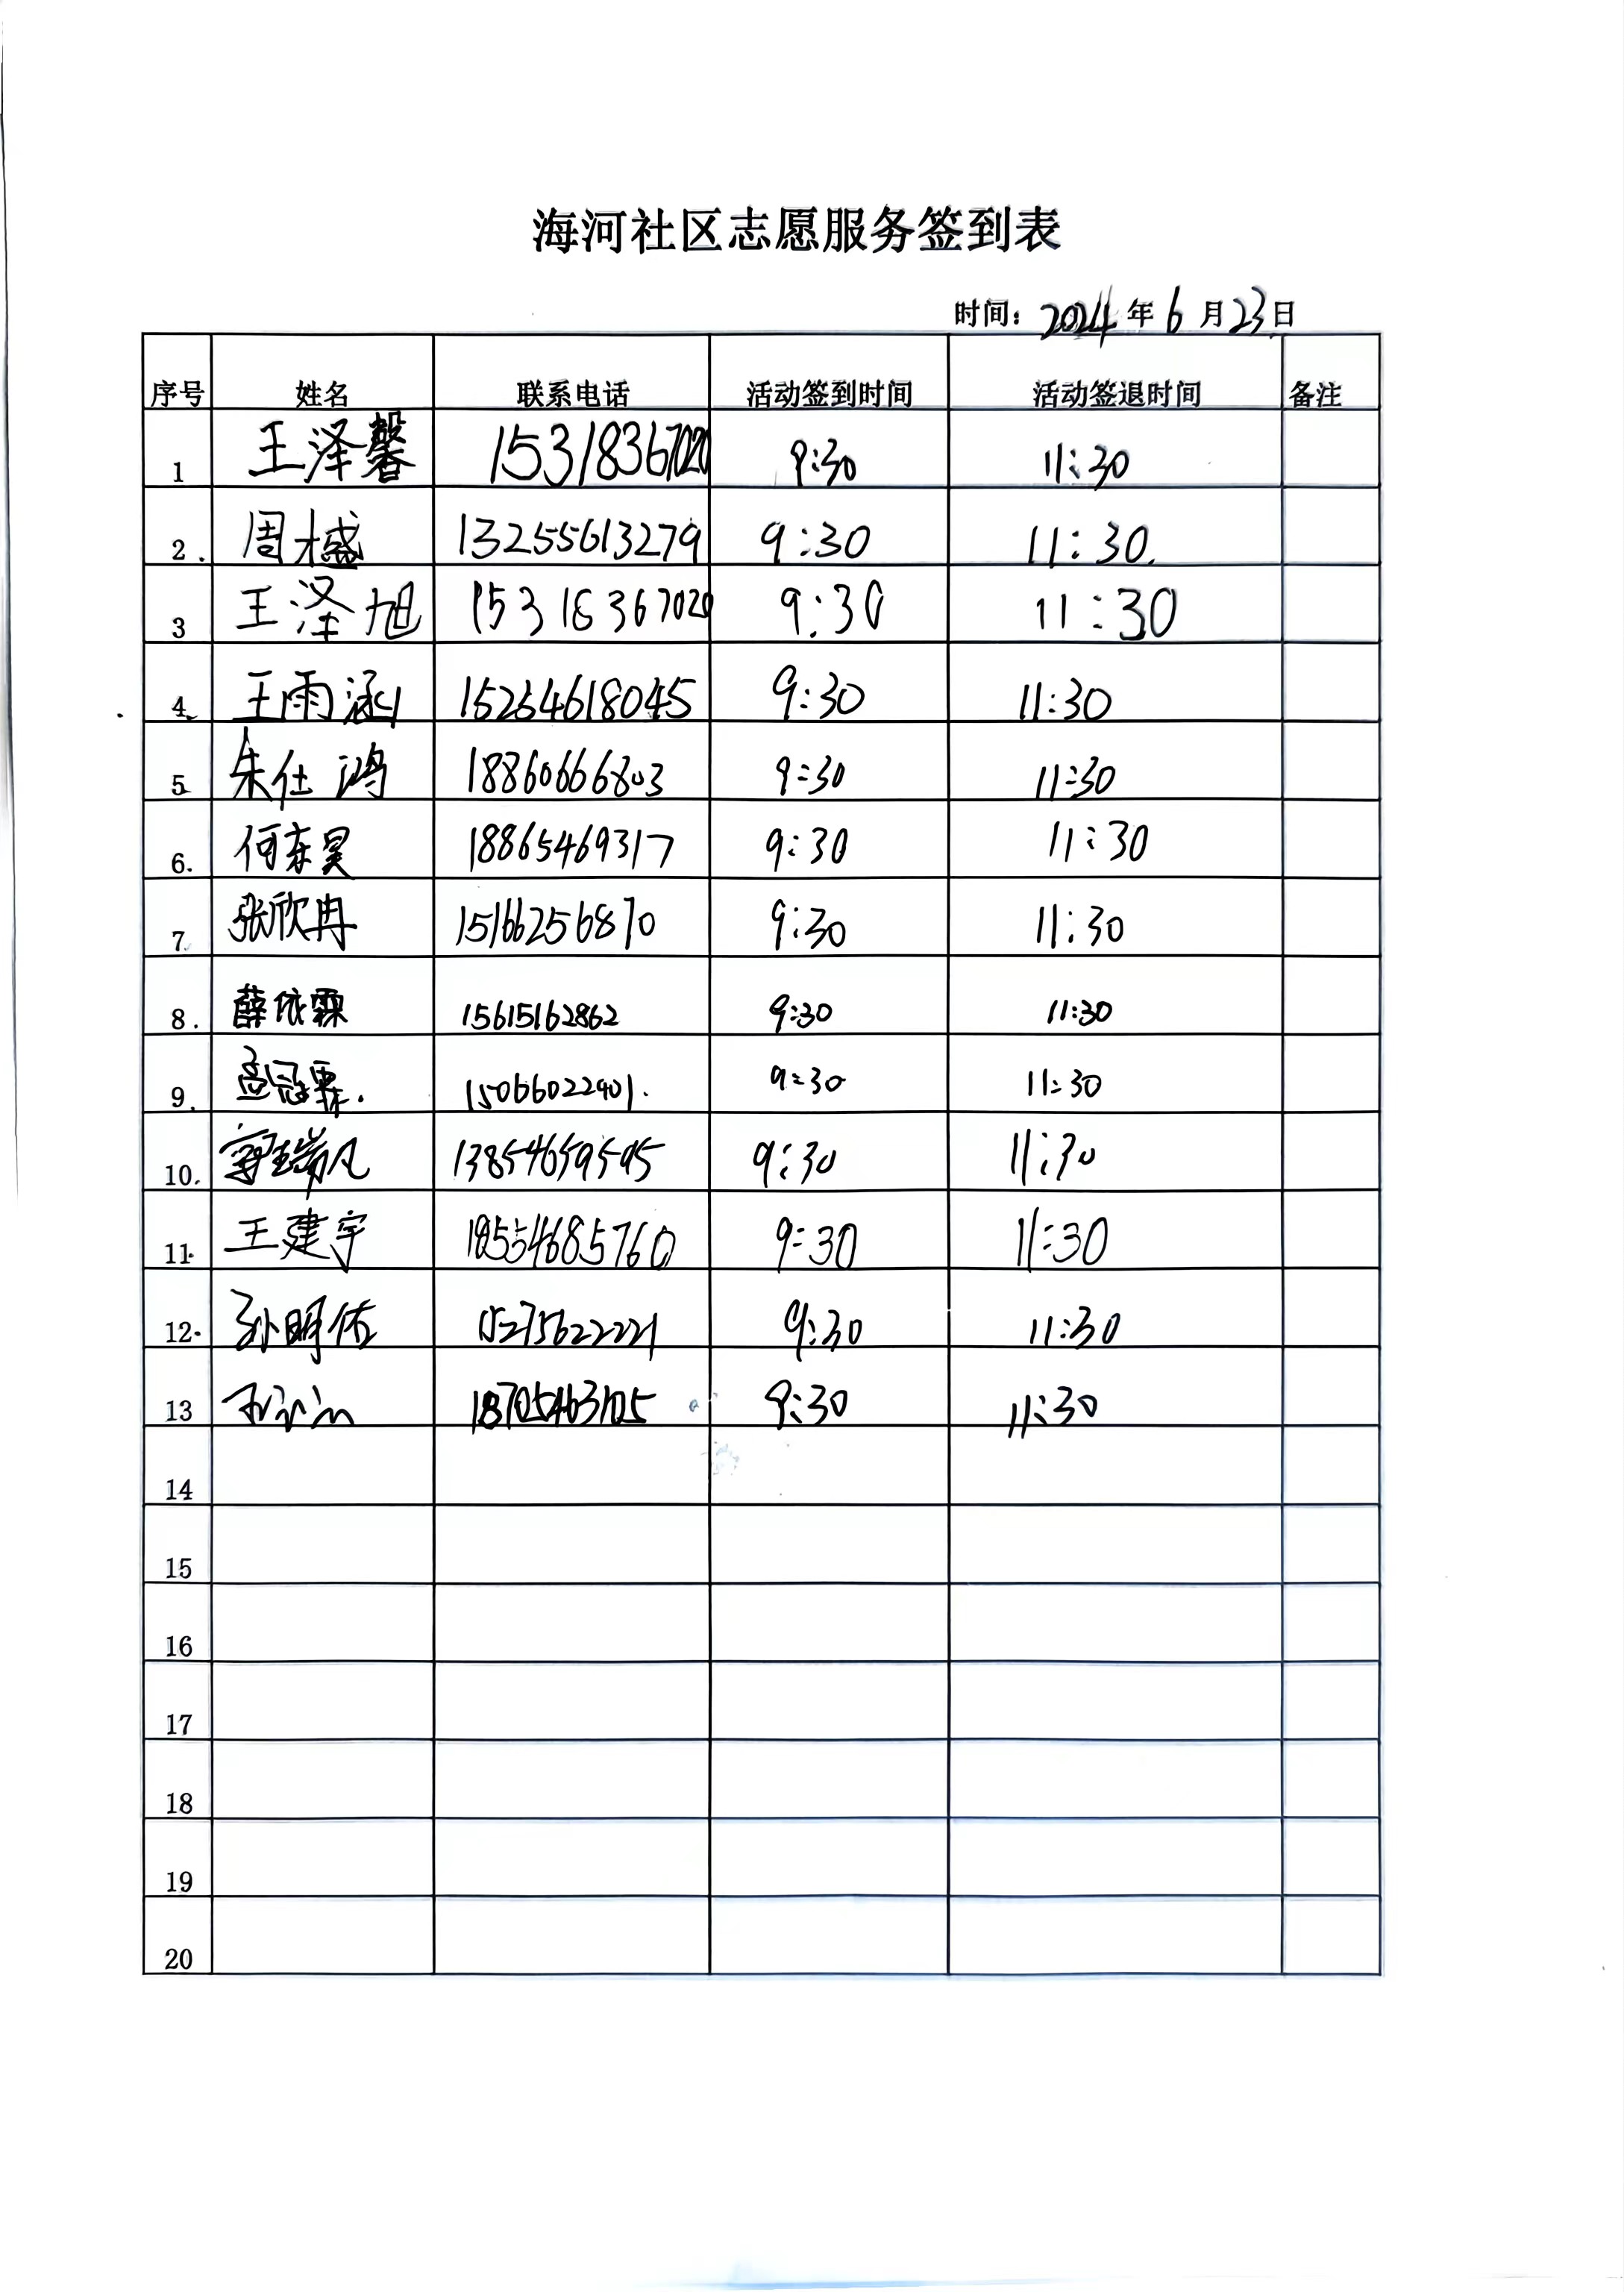 海河社区志愿服务签到表
时间: 2024 年 6 月 23 日
序号 姓名 联系电话 活动签到时间 活动签退时间 备注
1 王泽馨 15318367020 9:30 11:30
2. 周木盛 13255613279 9:30 11:30.
3 王泽旭 15318367020 9:30 11:30
4 王雨涵 15254618045 9:30 11:30
5 朱仕鸿 18860666803 9:30 11:30
6. 何东昊 18865469317 9:30 11:30
7. 张欣冉 15166256870 9:30 11:30
8. 薛依霖 15615162862 9:30 11:30
9. 孟冠霖. 15066022901. 9:30 11:30
10. 瑞凡 13854659595 9:30 11:30
11. 王建宇 18554685760 9:30 11:30
12. 孙明佑 15275622221 9:30 11:30
13 9:30 11:30
14
15
16
17
18
19
20